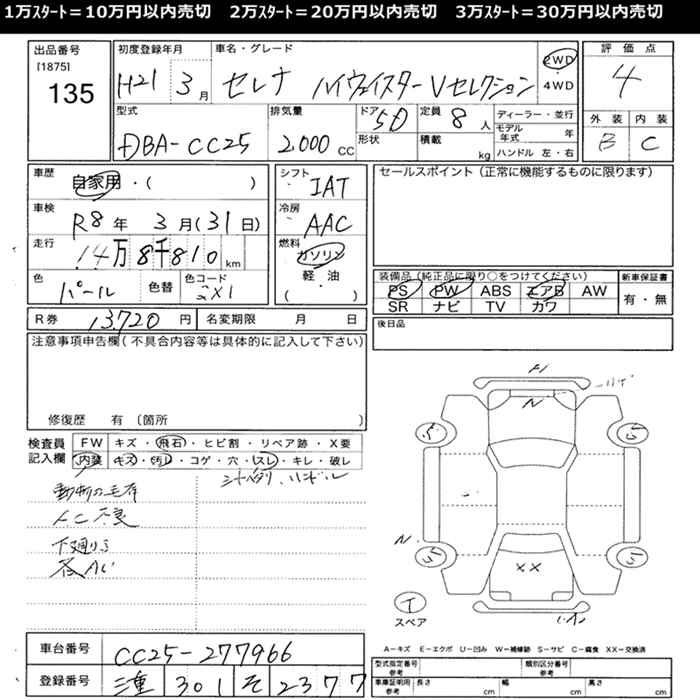 1万スタート＝10万円以内売切　2万スタート＝20万円以内売切　3万スタート＝30万円以内売切
出品番号
[1875]
135
初度登録年月
H21 3月
車名・グレード
セレナ ハイウェイスター Vセレクション
2WD
・
4WD
評価点
4
型式
DBA-CC25
排気量
2,000 CC
ドア
5D
形状
定員
8人
積載
kg
ディーラー・並行
モデル年式　年
ハンドル 左・右
外装　内装
B　C
車歴
自家用・(　)
車検
R8年 3月(31日)
走行
14万8千810 km
色
パール
色替
色コード
シフト
IAT
冷房
AAC
燃料
ガソリン
軽・油
(　)
セールスポイント（正常に機能するものに限ります）
装備品（純正品に限り○をつけてください）
PS　PW　ABS　エアB　AW
SR　ナビ　TV　カワ
新車保証書
有・無
後日品
R券
13,720 円
名変期限　月　日
注意事項申告欄（不具合内容等は具体的に記入して下さい）
修復歴　有〔箇所
検査員
記入欄
FW　キズ・飛石・ヒビ割・リペア跡・X要
内装　キズ・汚レ・コゲ・穴・スレ・キレ・破レ
シートヘタリ、ハンドル
動物の毛有
下廻りS
スペア
A－キズ　E－エクボ　U－凹み　W－補修跡　S－サビ　C－腐食　XX－交換済
車台番号
CC25-277966
登録番号
三重 301 そ 2377
型式指定番号
参考
類別区分番号
参考
車庫証明用
参考
長さ　cm　幅　cm　高さ　cm